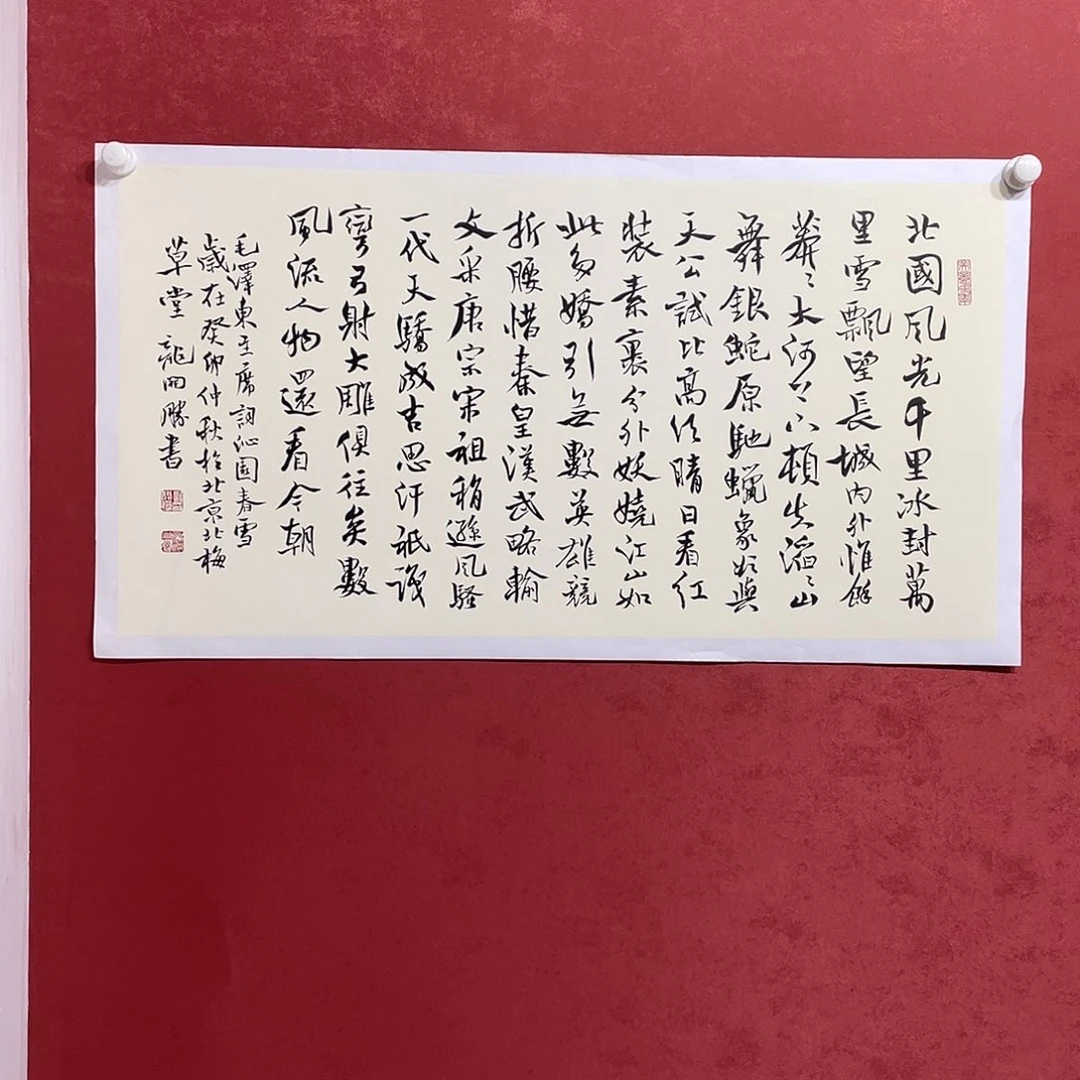 北國風光千里冰封萬
里雪飄望長城內外惟餘
莽〻大河上下頓失滔〻山
舞銀蛇原馳蠟象欲與
天公試比高須晴日看紅
裝素裹分外妖嬈江山如
此多嬌引無數英雄競
折腰惜秦皇漢武略輸
文采唐宗宋祖稍遜風騷
一代天驕成吉思汗祇識
彎弓射大雕俱往矣數
風流人物還看今朝
毛澤東主席詞沁園春雪
歲在癸卯仲秋於北京北梅
草堂龍開勝書